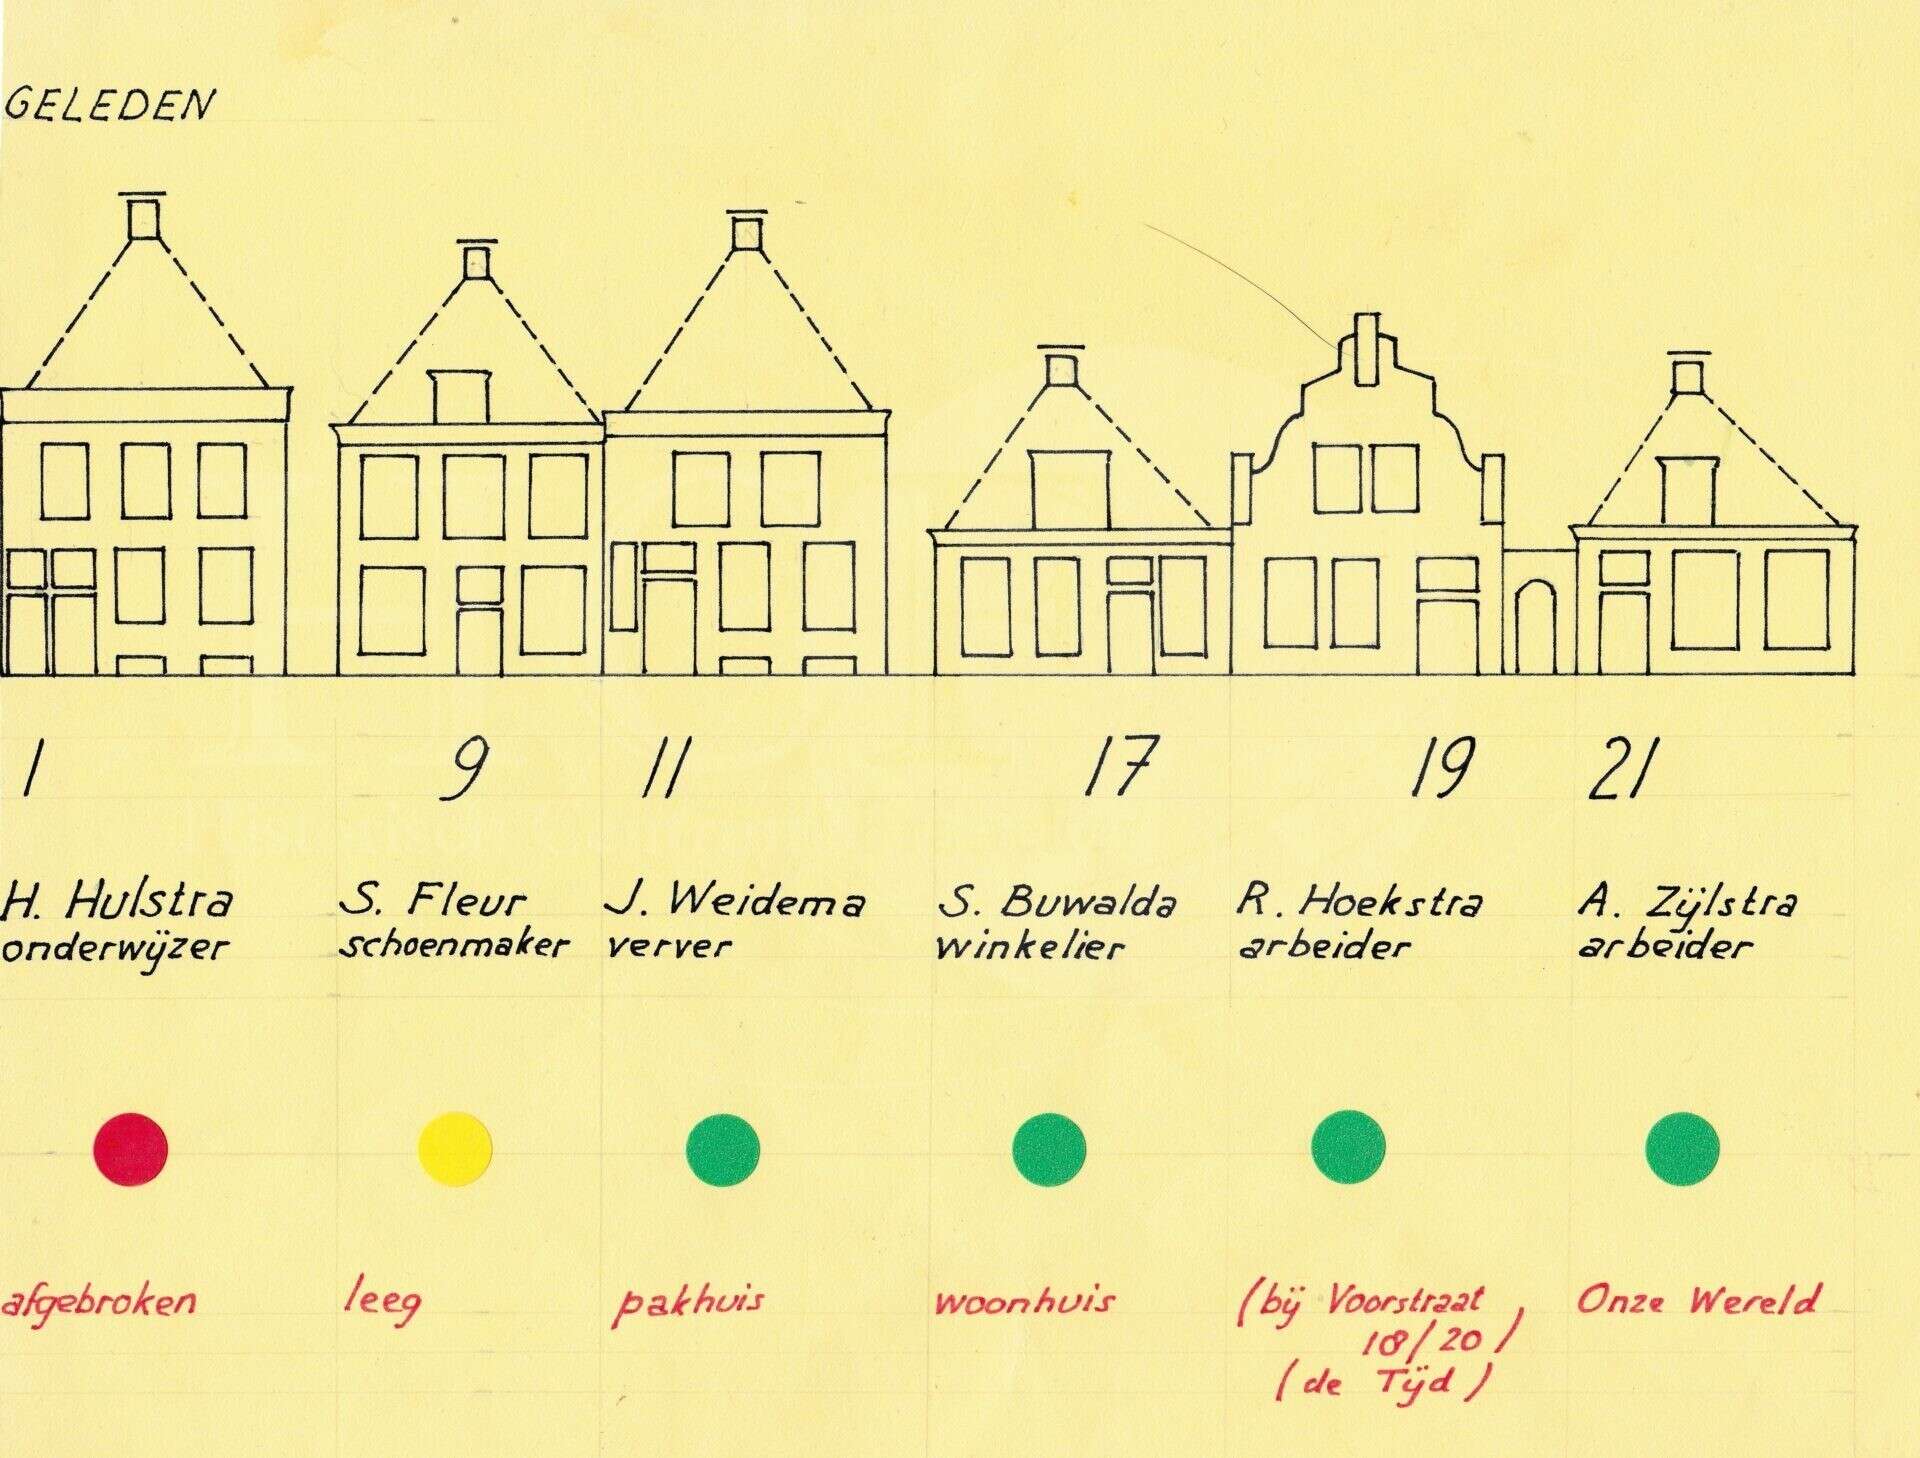 GELEDEN
1 9 11 17 19 21
H. Hulstra S. Fleur J. Weidema S. Buwalda R. Hoekstra A. Zijlstra
onderwijzer schoenmaker verver winkelier arbeider arbeider
afgebroken leeg pakhuis woonhuis (bij Voorstraat Onze Wereld
18/20)
(de Tijd)